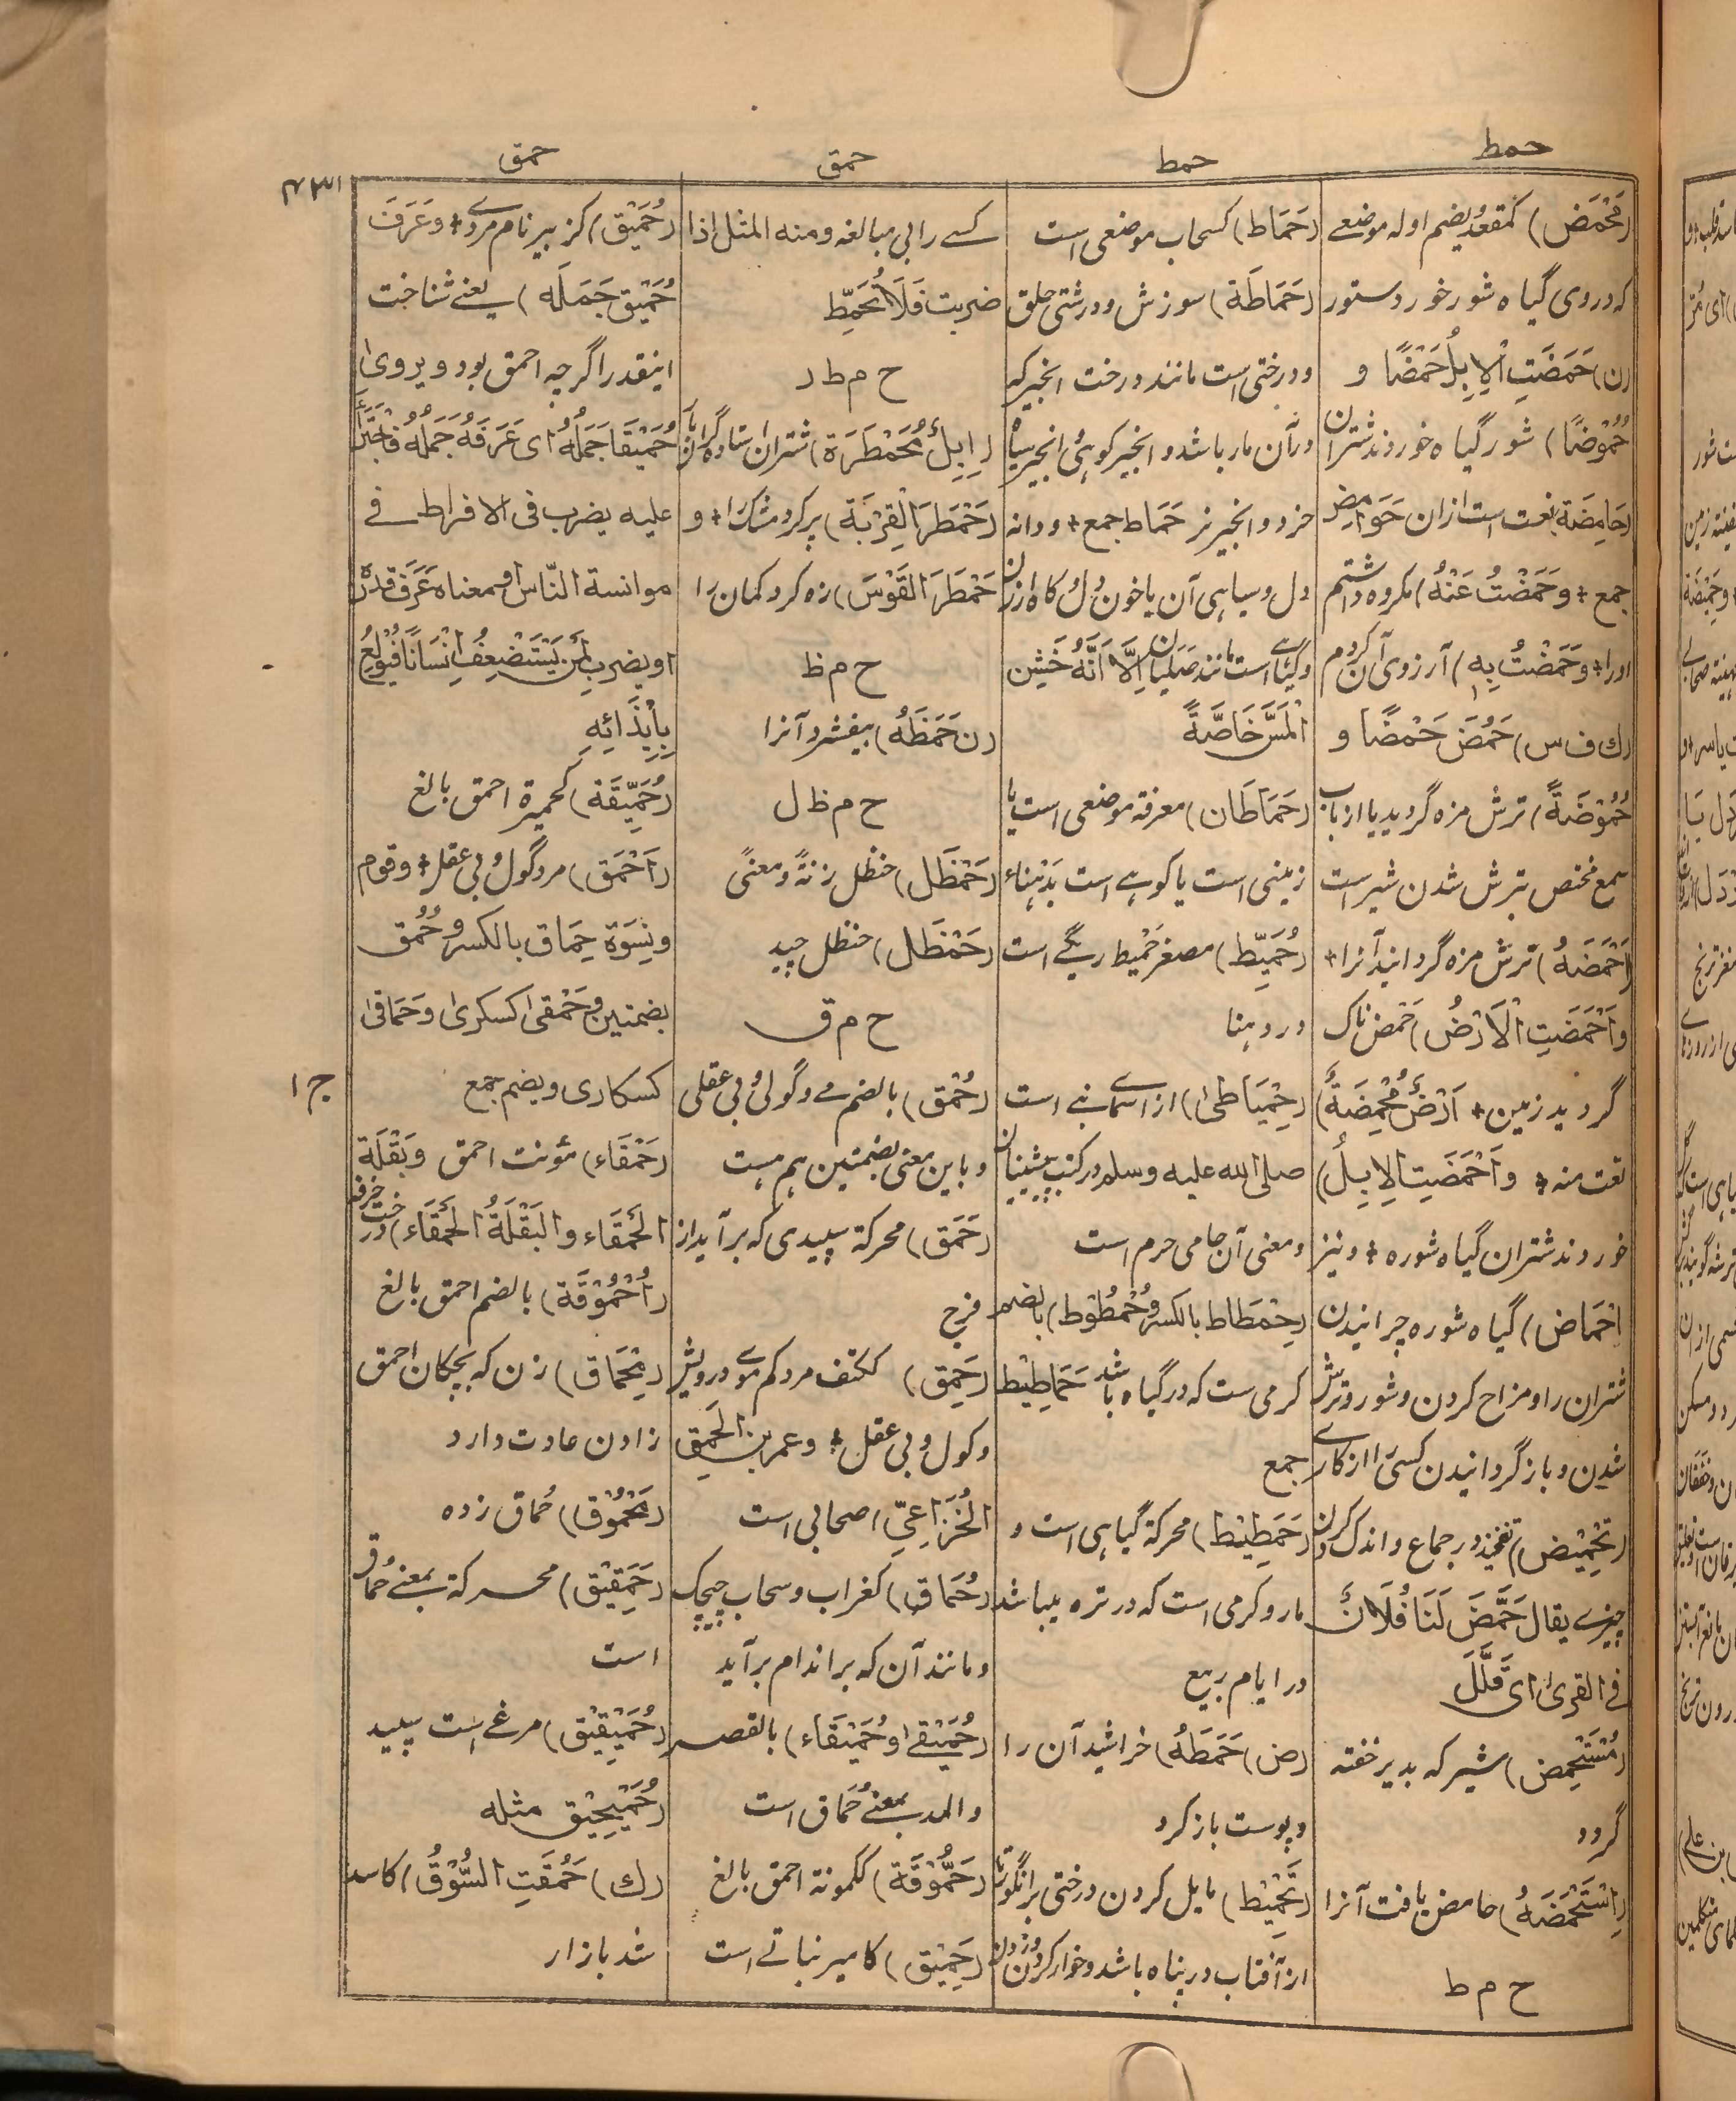 حمط
حمط
حمق
حمق
۴۳۱
(مَحْمَض) کمقعد بضم اوله موضعے
که در وی گیاه شور خورد ستور
(ن) حَمَضَتِ الْاِبِلُ حَمْضًا و
حُمُوْضًا) شور گیاه خوردند شتران
(حَامِضَة) نعت است ازان حَوَامِض
جمع + وحَمَضْتُ عَنْهُ) مکروه داشتم
اورا + وحَمَضْتُ بِهِ) آرزوی آن کردم
(ك ف س) حَمُضَ حَمْضًا و
حُمُوْضَةً) ترش مزه گردید یا از باب
سمع مختص بترش شدن شیر است
(اَحْمَضَهُ) ترش مزه گردانید آنرا +
واَحْمَضَتِ الْاَرْضُ) حَمض ناک
گردید زمین + اَرْضٌ مُحْمِضَةٌ)
نعت منه + واَحْمَضَتِ الاِبِلُ)
خوردند شتران گیاه شوره + ونیز
اِحْمَاض) گیاه شوره چرانیدن
شتران را و مزاح کردن و شور و ترش
شدن و باز گردانیدن کسی را از کارے
(تَحْمِیْض) تفخیذ در جماع و اندک کردن
چیزے یقال حَمَّضَ لَنَا فُلَانٌ
فی القریٰ ای قَلَّلَ
(مُسْتَحْمِض) شیر که بدیر خفته
گردد
(اِسْتَحْمَضَهُ) حامض یافت آنرا
ح م ط
(حَمَاط) کسحاب موضعی است
(حَمَاطَة) سوزش و درشتی حلق
و درختی است مانند درخت انجیر که
در آن مار باشد و انجیر کوهی و انجیر سیاه
خرد و انجیر نر حَمَاط جمع + و دانه
دل و سیاهی آن یا خون دل و کاه ارزن
و گیاهے است مانند صلیان اِلَّا اَنَّهُ خَشِن
الْمَسِّ خَاصَّةً
(حَمَاطَان) معرفة موضعی است یا
زمینی است یا کوهے است بدهناء
(حُمَیِّط) مصغر حَمِیط ریگے است
در دهنا
(حِمْیَاطیٰ) از اسمای نبے است
صلی الله علیه وسلم در کتب پیشینیان
و معنی آن حامی حرم است
(حِمْطَاط بالکسر و حُمْطُوْط) بالضم
کرمی ست که در گیاه باشد حَمَاطِیْط
جمع
(حَمَطِیْط) محرکة گیاهی است و
مار و کرمی است که در تره میباشد
در ایام ربیع
(ض) حَمَطَهُ) خراشید آن را
و پوست باز کرد
(تَحْمِیْط) مایل کردن درختی بر انگور تا
از آفتاب در پناه باشد و خوار کردن و زدن
کسے را بی مبالغه ومنه المثل اذا
ضربت فَلَا تُحَمِّط
ح م ط ر
(اِبِلٌ مُحَمْطَرَة) شتران ایستاده گران بار
(حَمْطَرَ الْقِرْبَة) پر کرد مشک را + و
حَمْطَرَ القَوْسَ) زه کرد کمان را
ح م ظ
(ن حَمَظَهُ) بیفشرد آنرا
ح م ظ ل
(حَمْظَل) حنظل زنةً ومعنیً
(حَمْظَل) حنظل چید
ح م ق
(حُمْق) بالضم مے و گولی و بی عقلی
و باین معنی بضمتین هم هست
(حَمَق) محرکة سپیدی که برآید از
فرج
(حَمِق) ککتف مرد کم موے در و ریش
و کول و بی عقل + و عمر بن الحَمِق
الخُزَاعِیّ) صحابی است
(حُمَاق) کغراب وسحاب چیچک
و مانند آن که بر اندام برآید
(حُمَیْقٰے و حُمَیْقَاء) بالقصر
والمد بمعنے حُمَاق است
(حَمُّوْقَة) ککمونة احمق بالغ
(حَمِیْق) کامیر نباتے است
(حُمَیْق) کزبیر نام مردے + وعَرَفَ
حُمَیْق جَمَلَه) یعنے شناخت
اینقدر اگرچه احمق بود و یرویٰ
حُمَیْقًا جَمَلُهُ ای عَرَفَهُ جَمَلُهُ فَاجْتَرَأَ
علیه یضرب فی الافراط فے
موانسة النّاس او معناه عَرَفَ قدرهٗ
او یضرب لمن یَسْتَضْعِفُ اِنْسَانًا فَیُوْلَعُ
بِاِیْذَائِهِ
(حُمَّیْقَة) کحمیرة احمق بالغ
(اَحْمَق) مرد گول و بی عقل + وقوم
ونِسْوَة حِمَاق بالکسر و حُمُق
بضمتین و حَمْقیٰ کسکریٰ وحَمَاقیٰ
کسکاری و بضم جمع
ج ۱
(حَمْقَاء) مؤنث احمق وبَقْلَة
الحَمْقَاء والبَقْلَةُ الحَمْقَاء) درخت خرفه
(اُحْمُوْقَة) بالضم احمق بالغ
(مِحْمَاق) زن که بچگان احمق
زادن عادت دارد
(مَحْمُوْق) حُماق زده
(حَمَقِیْق) محرکة بمعنے حُماق
است
(حُمَیْقِیْق) مرغے است سپید
(حُمَیْمِیْق مثله
(ك) حَمُقَتِ السُّوْقُ) کاسد
شد بازار